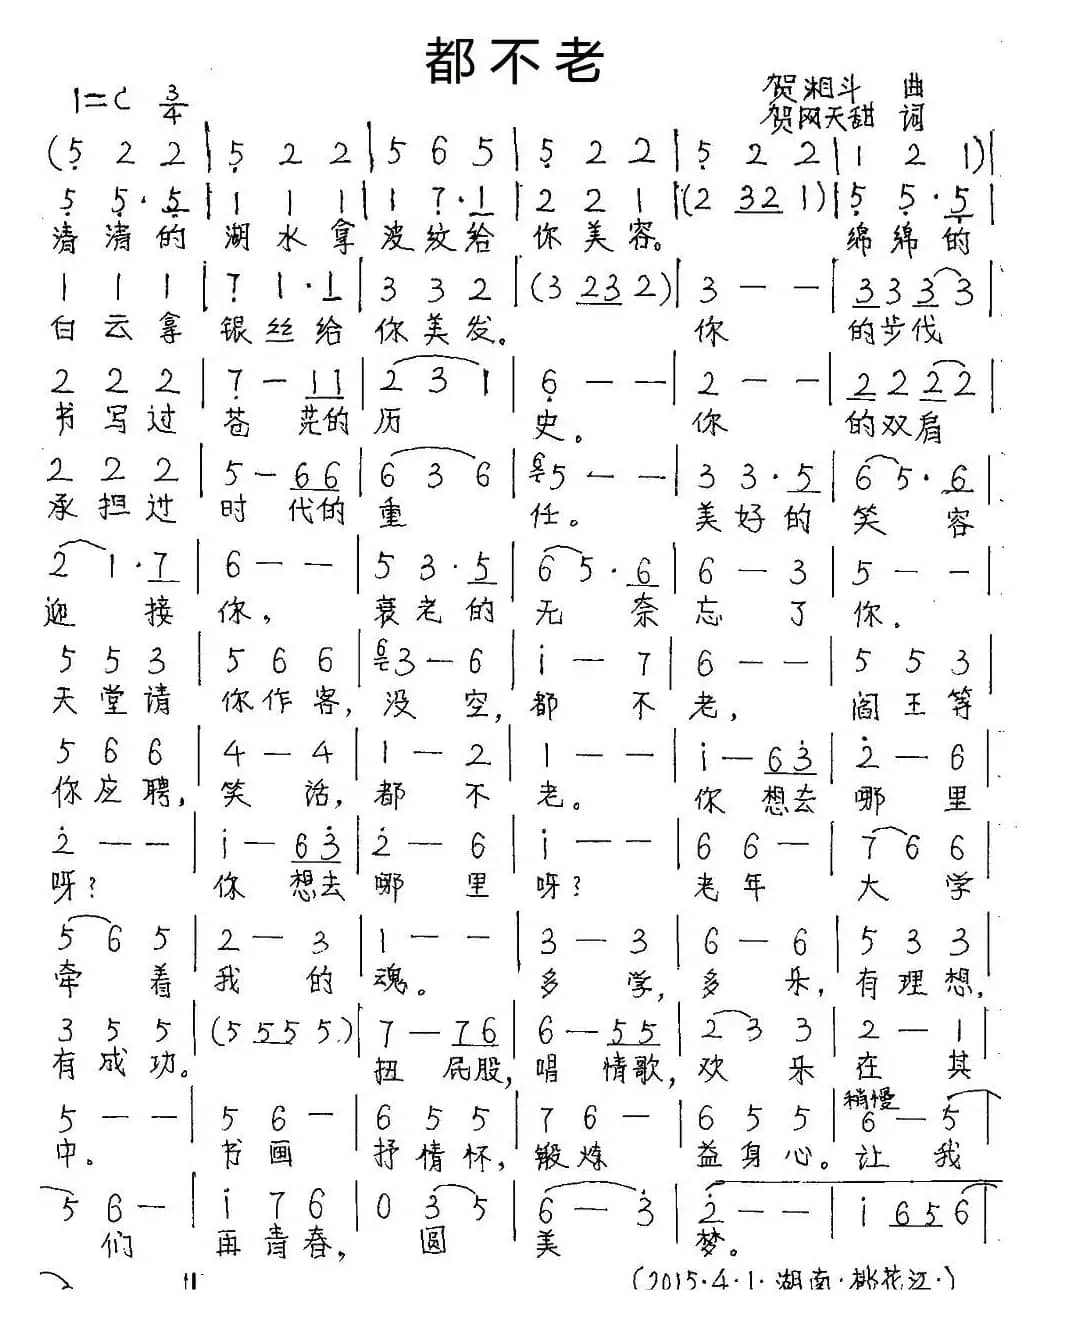 都不老
1=C 3/4
贺湘斗 曲
贺网天甜 词
(5 2 2 | 5 2 2 | 5 6 5 | 5 2 2 | 5 2 2 | 1 2 1) |
5 5· 5 | 1 1 1 | 1 7· 1 | 2 2 1 | (2 32 1) | 5 5· 5 |
清清的 湖水拿 波纹给 你美容。 绵绵的
1 1 1 | 7 1· 1 | 3 3 2 | (3 23 2) | 3 - - | 3 3 3 3 |
白云拿 银丝给 你美发。 你 的步伐
2 2 2 | 7 - 11 | 2 3 1 | 6 - - | 2 - - | 2 2 2 2 |
书写过 苍茫的 历 史。 你 的双肩
2 2 2 | 5 - 66 | 6 3 6 | 6 5 - - | 3 3· 5 | 6 5· 6 |
承担过 时代的 重 任。 美好的 笑容
2 1· 7 | 6 - - | 5 3· 5 | 6 5· 6 | 6 - 3 | 5 - - |
迎接 你, 衰老的 无奈 忘了 你.
5 5 3 | 5 6 6 | 6 3 - 6 | i - 7 | 6 - - | 5 5 3 |
天堂请 你作客, 没空, 都不 老, 阎王等
5 6 6 | 4 - 4 | 1 - 2 | 1 - - | i - 63 | 2 - 6 |
你应聘, 笑话, 都不 老。 你想去 哪里
2 - - | i - 63 | 2 - 6 | i - - | 6 6 - | 7 6 6 |
呀? 你想去 哪里 呀? 老年 大学
5 6 5 | 2 - 3 | 1 - - | 3 - 3 | 6 - 6 | 5 3 3 |
牵着 我的 魂。 多学, 多乐, 有理想,
3 5 5 | (5 55 5.) | 7 - 76 | 6 - 55 | 2 3 3 | 2 - 1 |
有成功。 扭屁股, 唱情歌, 欢乐 在其
稍慢
5 - - | 5 6 - | 6 5 5 | 7 6 - | 6 5 5 | 6 - 5 |
中。 书画 抒情怀, 锻炼 益身心。 让我
5 6 - | i 7 6 | 0 3 5 | 6 - 3 | 2 - - | i 6 5 6 |
们 再青春, 圆 美 梦。
(2015·4·1·湖南·桃花江·)